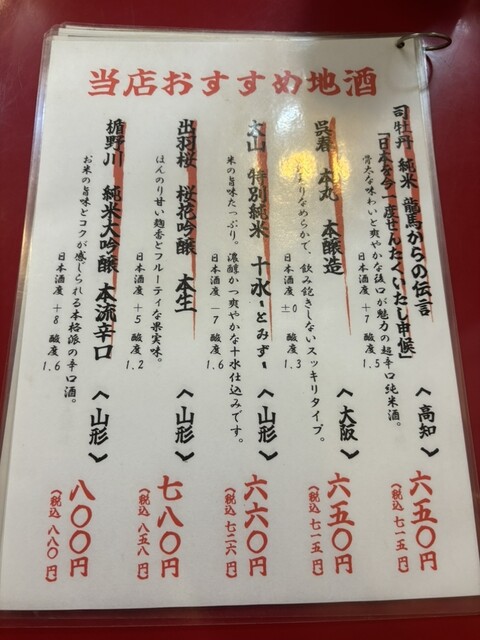 当店おすすめ地酒
司牡丹 純米 龍馬からの伝言
「日本を今一度せんたくいたし申候」
〈高知〉
骨太な味わいと爽やかな後口が魅力の超辛口純米酒。
日本酒度 +7 酸度 1.5
六五〇円
(税込 七一五円)
呉春 本丸 本醸造
〈大阪〉
まろりなめらかで、飲み飽きしないスッキリタイプ。
日本酒度 ±0 酸度 1.3
六五〇円
(税込 七一五円)
大山 特別純米 十水 -とみず-
〈山形〉
米の旨味たっぷり。濃醇かつ爽やかな十水仕込みです。
日本酒度 -7 酸度 1.6
六六〇円
(税込 七二六円)
出羽桜 桜花吟醸 本生
〈山形〉
ほんのり甘い麹香とフルーティな果実味。
日本酒度 +5 酸度 1.2
七八〇円
(税込 八五八円)
楯野川 純米大吟醸 本流辛口
〈山形〉
お米の旨味とコクが感じられる本格派の辛口酒。
日本酒度 +8 酸度 1.6
八〇〇円
(税込 八八〇円)